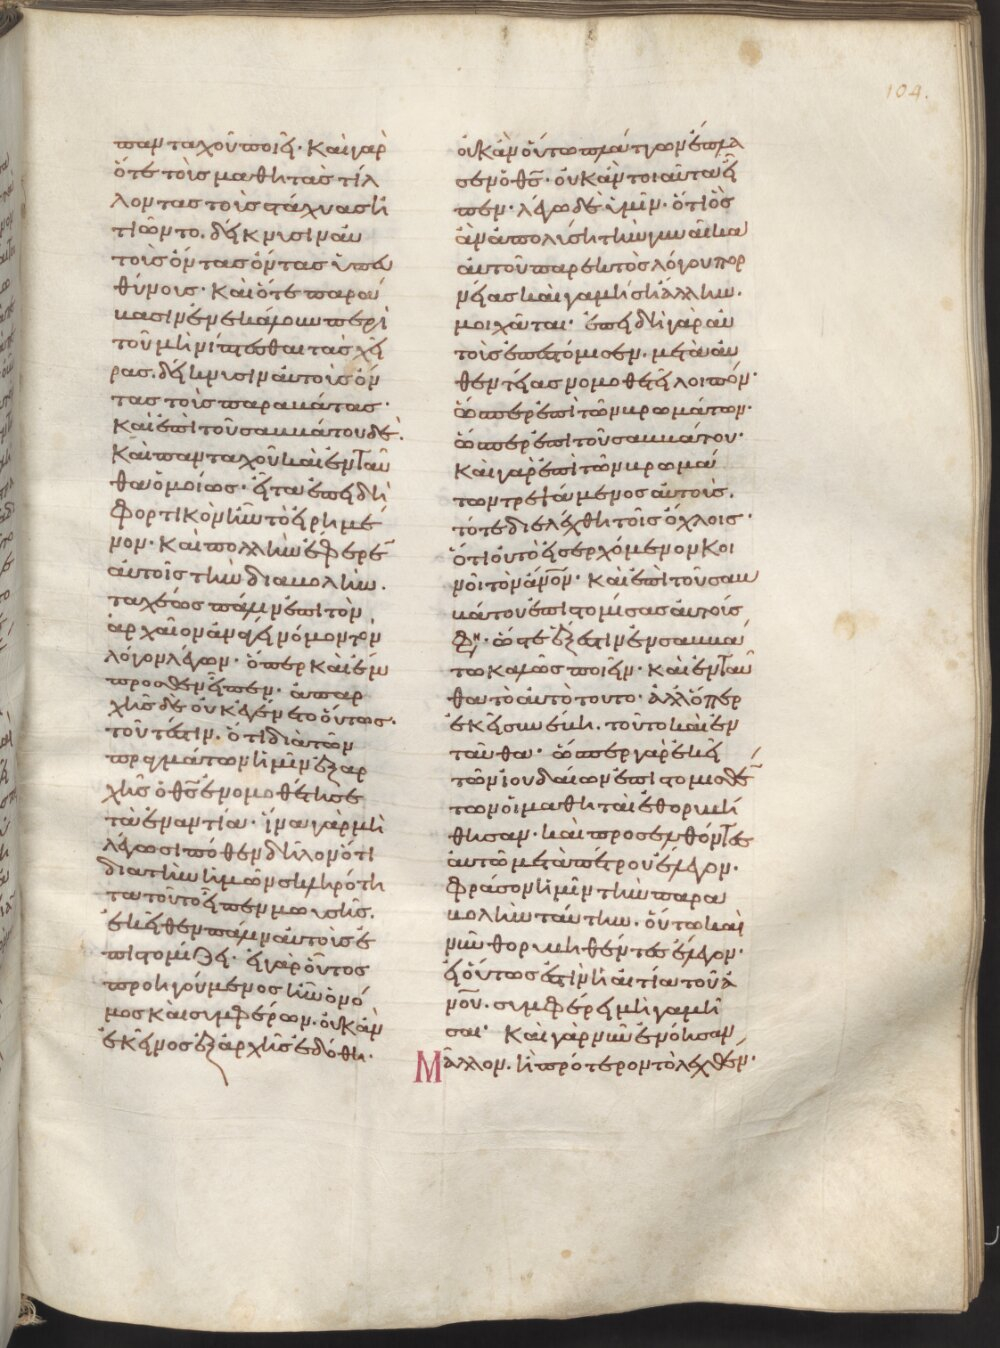 104.
πανταχοῦ ποιεῖ· Καὶ γὰρ
ὅτε τοῖς μαθηταῖς τίλ
λουσι τοὺς στάχυας ἠ
τιῶντο. δείκνυσιν αὐ
τοὺς ὄντας ὄντας ὑπευ
θύνοις· Καὶ ὅτε παρού
νασιν ἐνεκάλουν περὶ
τοῦ μὴ νίπτεσθαι τὰς χεῖ
ρας. δείκνυσιν αὐτοὺς ὄν
τας τοὺς παραβάτας·
Καὶ ἐπὶ τοῦ σαββάτου δὲ.
Καὶ πανταχοῦ καὶ ἐνταῦ
θα ὁμοίως· εἶτα ἐπειδὴ
φορτικὸν ἦν τὸ εἰρημέ
νον· Καὶ πολλὴν ἔφερεν
αὐτοῖς τὴν διαβολὴν.
ταχέως πάλιν ἐπὶ τὸν
ἀρχαῖον ἀνάγει νόμον τὸν
λόγον λέγων· ὅπερ Καὶ ἔμ
προσθεν εἶπεν· ἀπαρ
χῆς δὲ οὐ γέγονεν οὕτως.
τοῦτέστιν. ὅτι διὰ τῶν
πραγμάτων ἡμῖν ἐξαρ
χῆς ὁ θς ἐνομοθέτησε
τὰ ἐναντία· ἵνα γὰρ μὴ
λέγωσι πόθεν δῆλον ὅτι
διὰ τὴν ἡμῶν σκληρότη
τα τοῦτο εἶπεν μωυσῆς.
ἐκεῖθεν πάλιν αὐτοὺς ἐ
πιστομίζει· εἰ γὰρ οὗτος
προηγούμενος ἦν ὁ νό
μος καὶ συμφέρων. οὐκ ἂν
ἐκεῖνος ἐξ ἀρχῆς ἐδόθη·
οὐκ ἂν οὕτω πλάττων ἔπλα
σεν ὁ θς· οὐκ ἂν τοιαῦτα εἶ
πεν· λέγω δὲ ὑμῖν· ὅτι ὃς
ἂν ἀπολύσῃ τὴν γυναῖκα
αὐτοῦ παρεκτὸς λόγου πορ
νείας καὶ γαμήσῃ ἄλλην.
μοιχᾶται· ἐπειδὴ γὰρ αὐ
τοὺς ἐπεστόμισεν. μετὰ αὐ
θεντείας νομοθετεῖ λοιπόν·
ὥσπερ ἐπὶ τῶν βρωμάτων·
ὥσπερ ἐπὶ τοῦ σαββάτου·
Καὶ γὰρ ἐπὶ τῶν βρωμά
των τρεψάμενος αὐτοὺς.
τότε διελέχθη τοῖς ὄχλοις·
ὅτι οὐ τὸ εἰσερχόμενον Κοι
νοῖ τὸν ἄνον· Καὶ ἐπὶ τοῦ σαβ
βάτου ἐπιστομίσας αὐτοὺς
φη· ὥστε ἔξεστιν ἐν σαββά
τω καλῶς ποιεῖν· Καὶ ἐνταῦ
θα τὸ αὐτὸ τοῦτο· Ἀλλ' ὅπερ
ἐκεῖ συνέβη. τοῦτο καὶ ἐν
ταῦθα· ὥσπερ γὰρ ἐκεῖ
τῶν ἰουδαίων ἐπιστομισθέν
των οἱ μαθηταὶ ἐθορυβή
θησαν. καὶ προσελθόντες
αὐτῷ μετὰ πέτρου ἔλεγον·
φράσον ἡμῖν τὴν παρα
βολὴν ταύτην. οὕτω καὶ
νῦν θορυβηθέντες ἔλεγον·
εἰ οὕτως ἐστὶν ἡ αἰτία τοῦ ἀ
νου. συμφέρει μὴ γαμῆ
σαι· Καὶ γὰρ νῦν ἐνόησαν
Μᾶλλον. ἢ πρότερον τὸ λεχθέν·